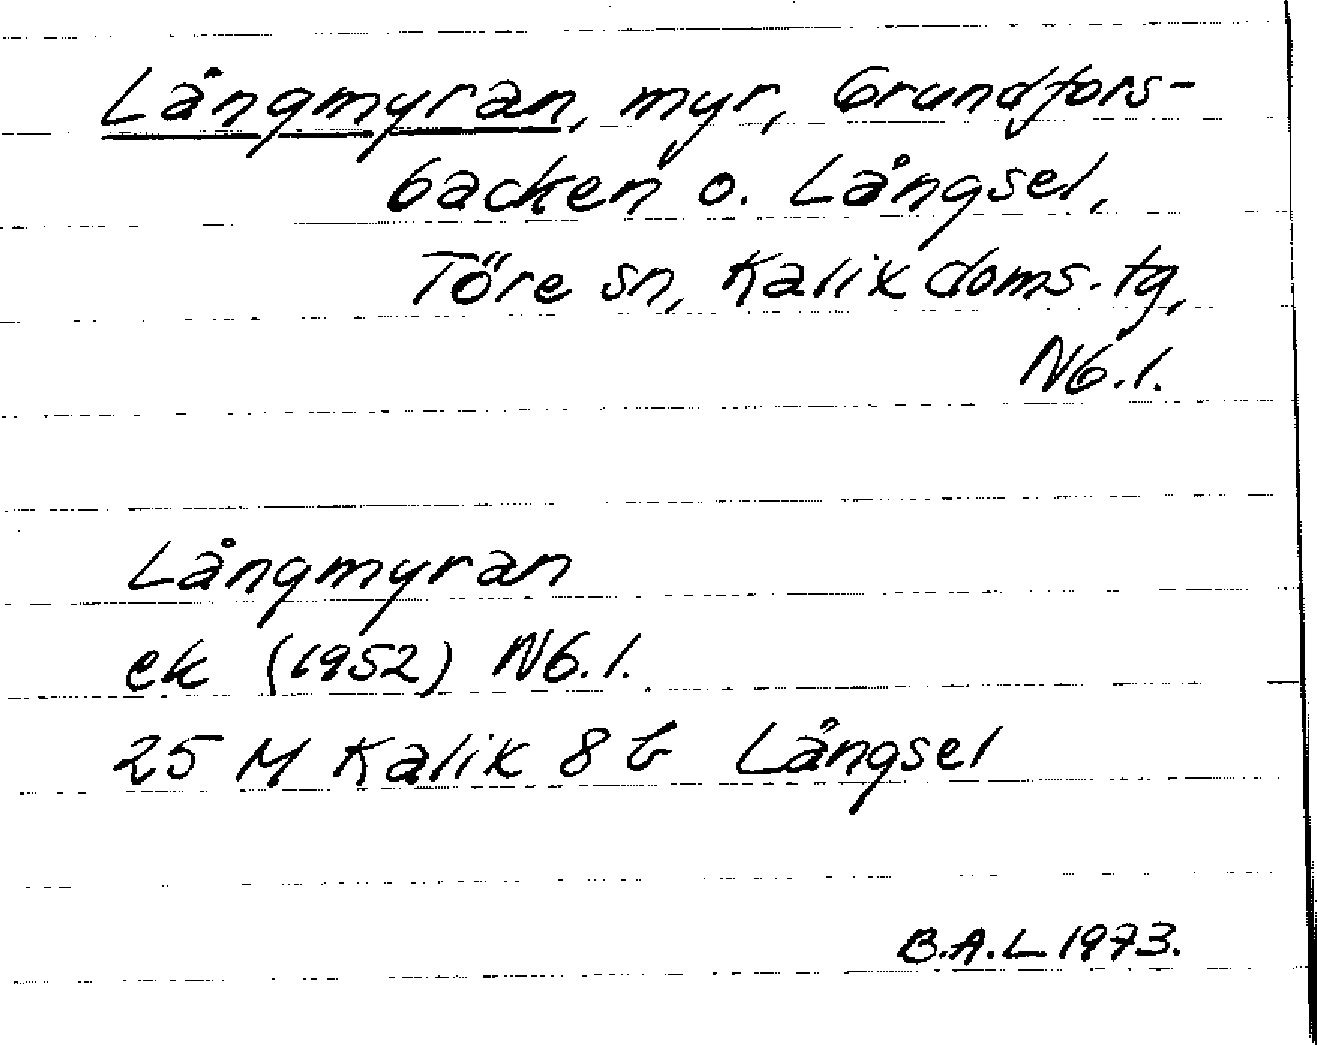 Långmyran, myr, Grundfors-
backen o. Långsel,
Töre sn, Kalix doms. tg,
Nb. l.
Långmyran
ek (1952) Nb. l.
25 M Kalix 8 b Långsel
B.A.L 1973.